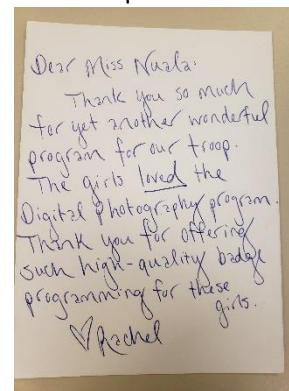 Dear Miss Nuala:
Thank you so much
for yet another wonderful
program for our troop.
The girls loved the
Digital Photography program.
Thank you for offering
such high-quality badge
programming for these
girls.
♡Rachel